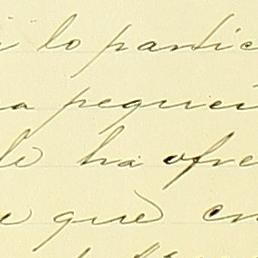 i lo partic
a pequeñ
le ha ofre
e que en